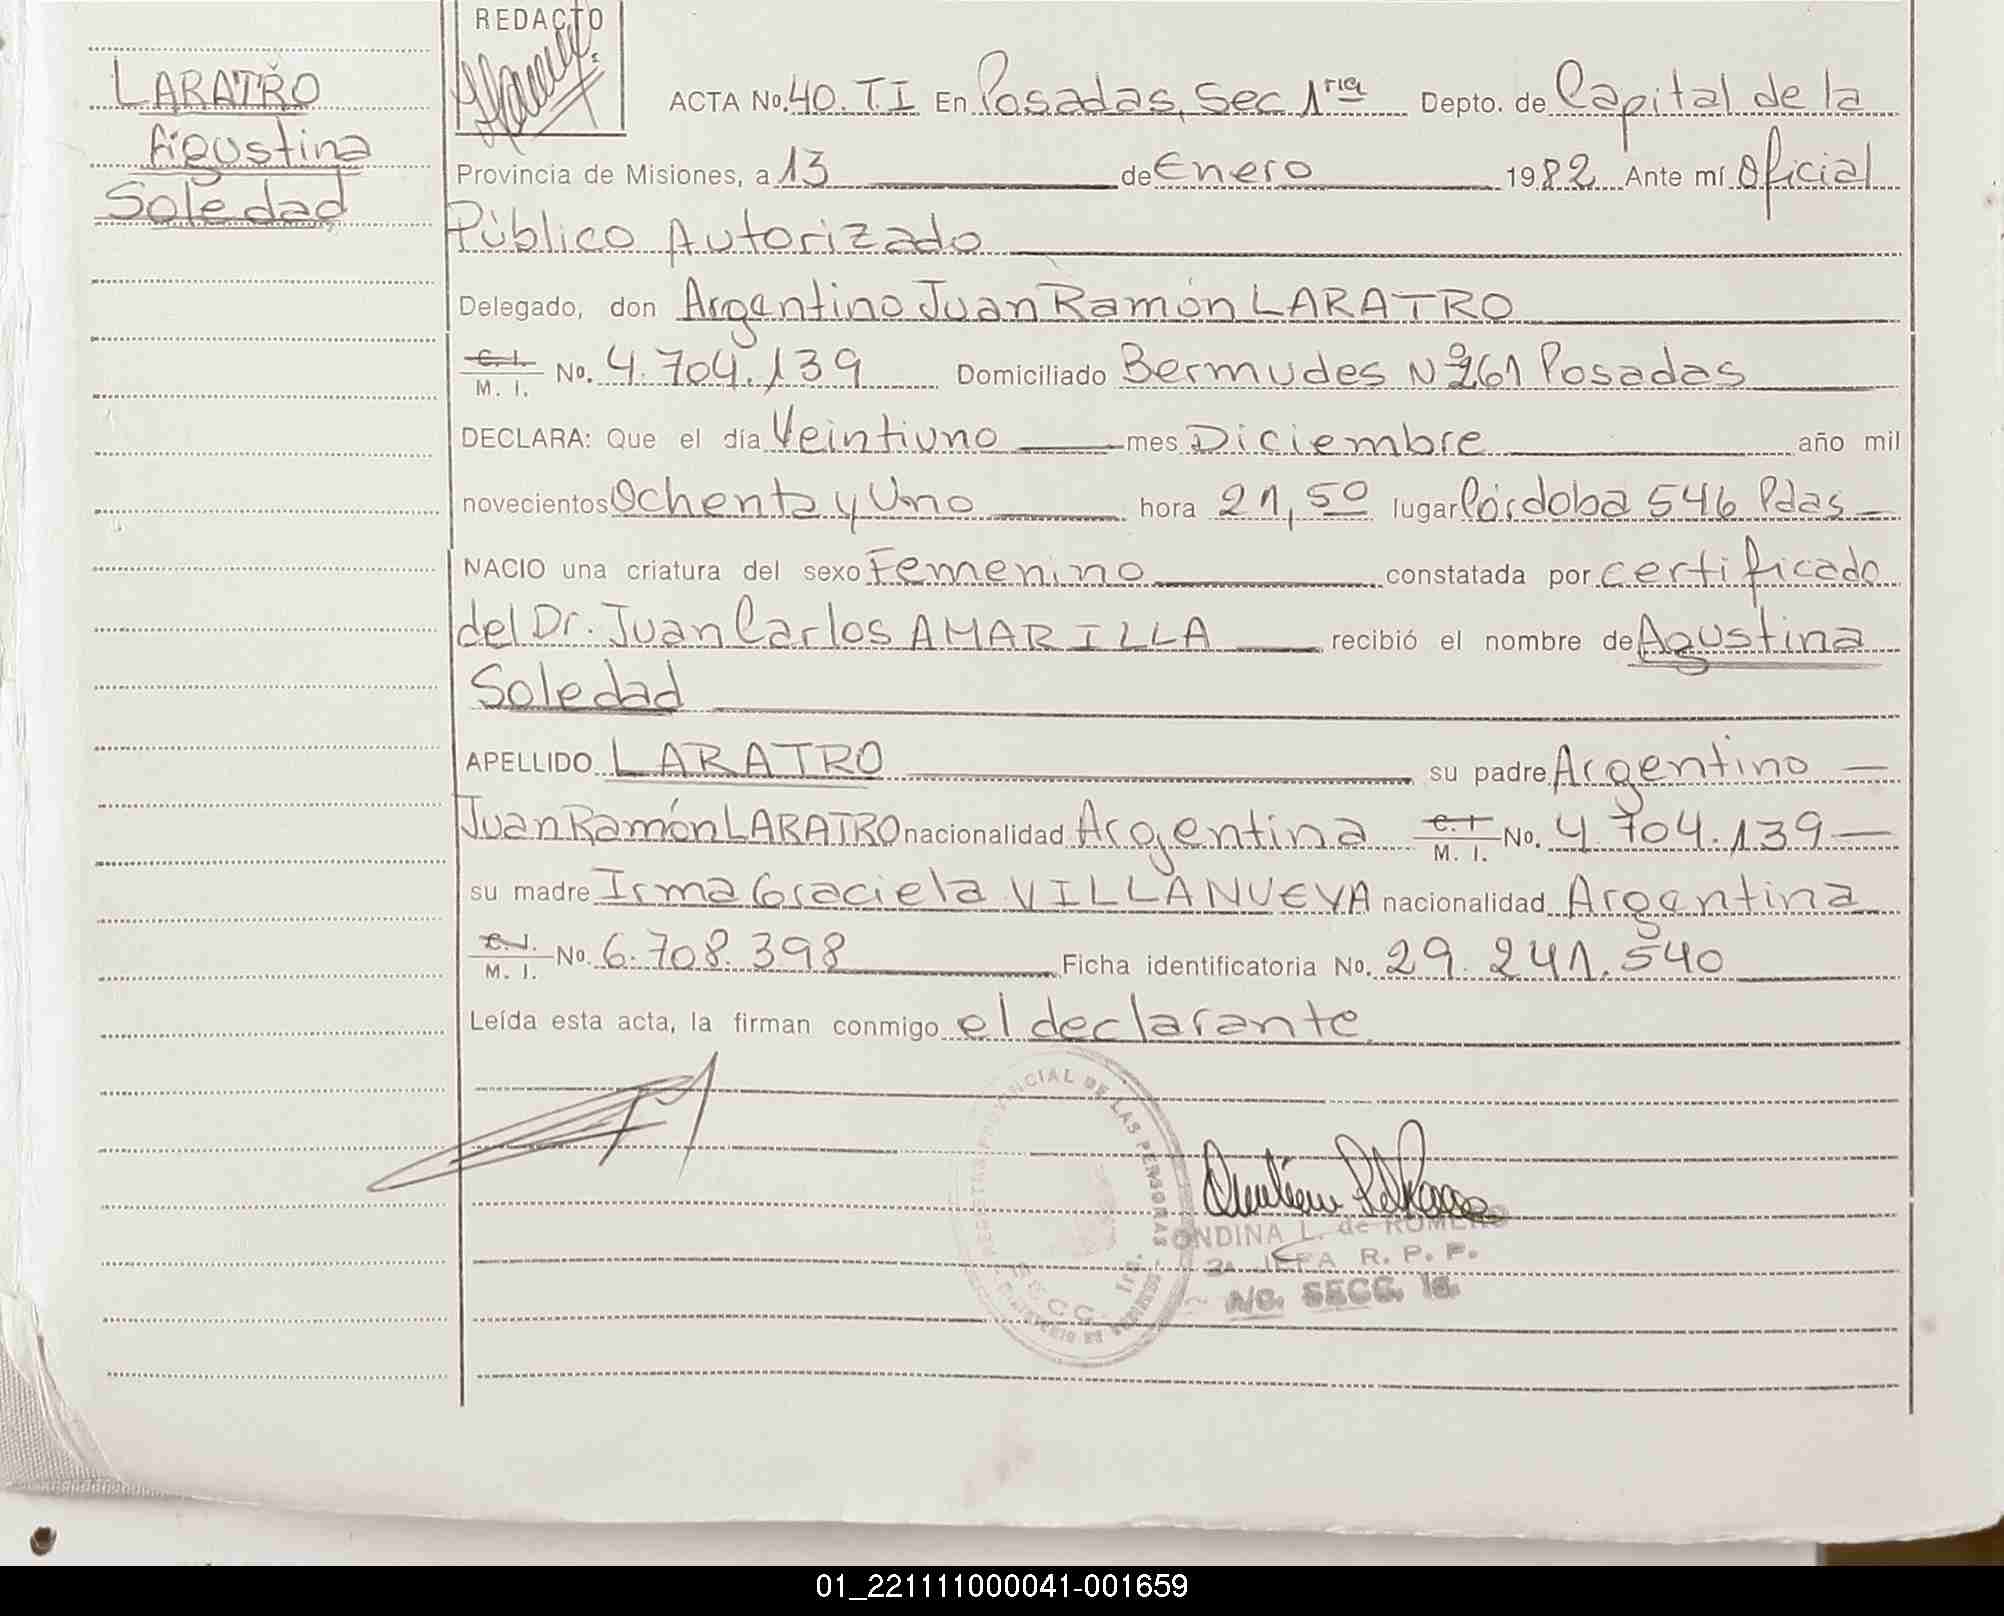 REDACTO
LARATRO
Agustina
Soledad
ACTA No. 40. T.I En Posadas, Sec 1ria Depto. de Capital de la
Provincia de Misiones, a 13 de Enero 1982 Ante mí Oficial
Público Autorizado
Delegado, don Argentino Juan Ramón LARATRO
C. I.
M. I. No. 4.704.139 Domiciliado Bermudes Nº 261 Posadas
DECLARA: Que el día Veintiuno mes Diciembre año mil
novecientos Ochenta y Uno hora 21,50 lugar Córdoba 546 Pdas
NACIO una criatura del sexo Femenino constatada por certificado
del Dr. Juan Carlos AMARILLA recibió el nombre de Agustina
Soledad
APELLIDO LARATRO su padre Argentino
Juan Ramón LARATRO nacionalidad Argentina C. I. M. I. No. 4.704.139
su madre Irma Graciela VILLANUEVA nacionalidad Argentina
C. I.
M. I. No. 6.708.398 Ficha identificatoria No. 29.241.540
Leída esta acta, la firman conmigo el declarante
REGISTRO PROVINCIAL DE LAS PERSONAS
SECC. 1ra.
ONDINA L. de ROMERO
2a JEFA R. P. P.
A/C. SECC. 1a.
01_221111000041-001659